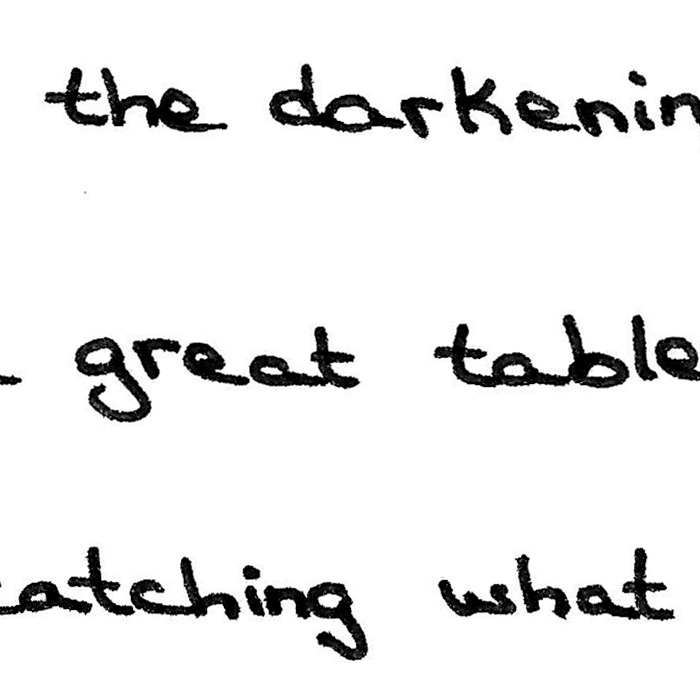 the darkenin
great table
catching what